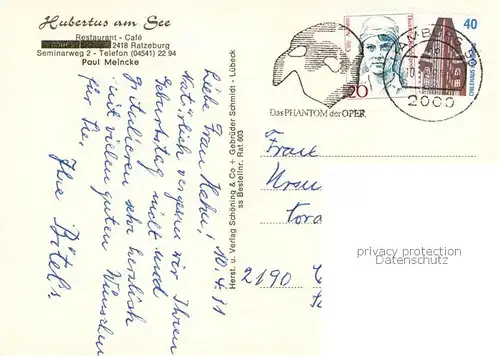 Hubertus am See
Restaurant - Café
2418 Ratzeburg
Seminarweg 2 - Telefon (04541) 22 94
Paul Meincke
Liebe Frau Hahn! 10.4.91
Natürlich vergessen wir Ihren
Geburtstag nicht und
gratulieren sehr herzlich
mit vielen guten Wünschen
für Sie.
Ihre
Herst. u. Verlag Schöning & Co + Gebrüder Schmidt - Lübeck
ss Bestellnr. Rat 603
Das PHANTOM der OPER.
20
40
CHILEHAUS
HAMBURG
2000
Frau
2190
privacy protection
Datenschutz